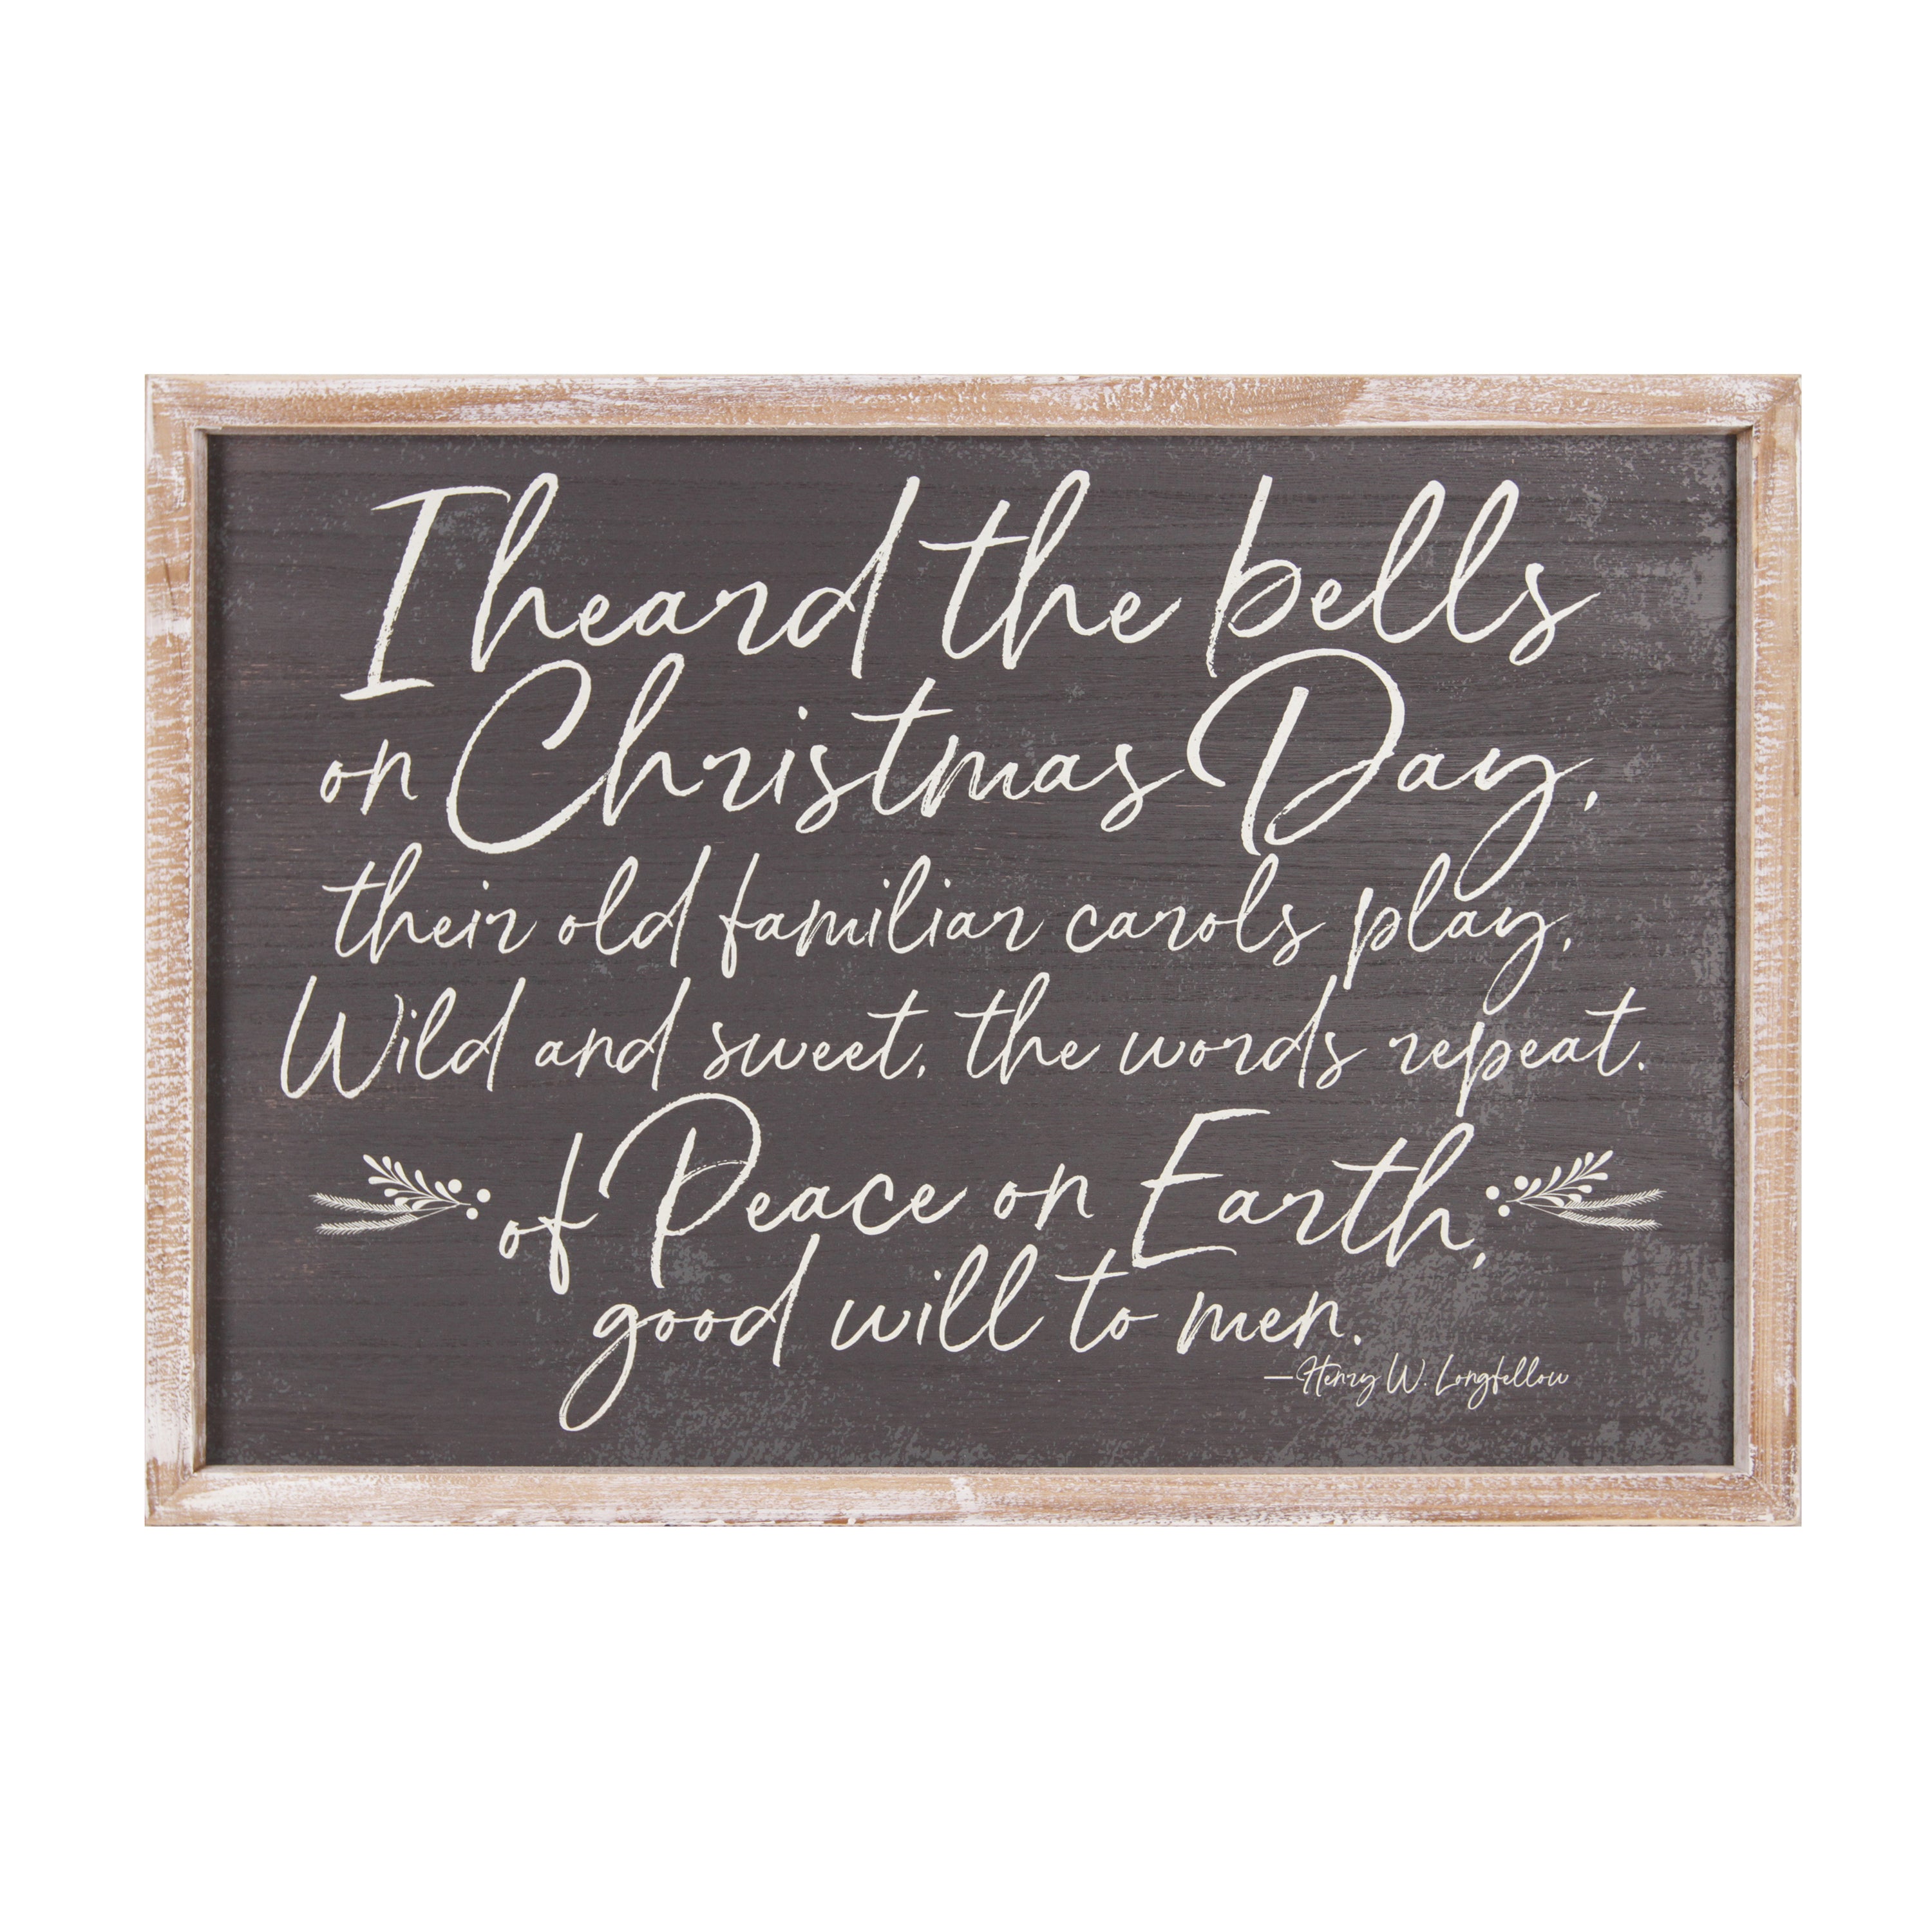 I heard the bells
on Christmas Day,
their old familiar carols play,
Wild and sweet, the words repeat.
of Peace on Earth,
good will to men.
—Henry W. Longfellow